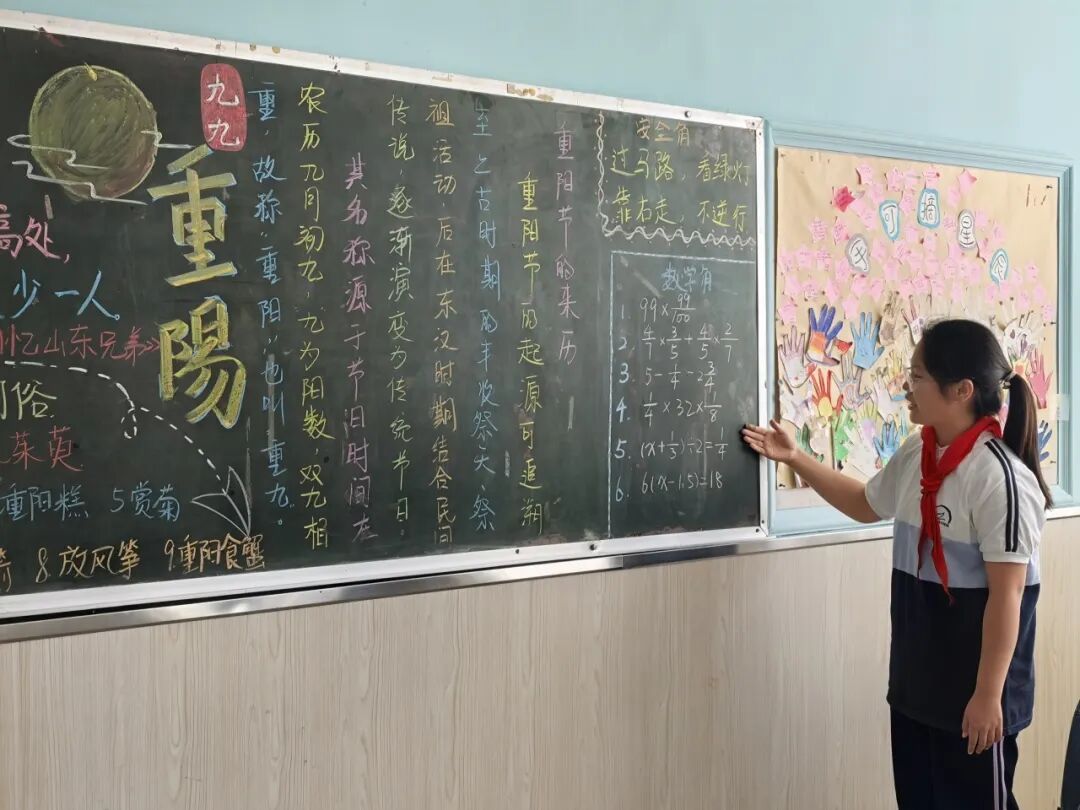 九九
重陽
高处,
少一人。
忆山东兄弟》
俗
茱萸
重阳糕 5赏菊
8放风筝 9重阳食蟹
重阳节的来历
重阳节的起源可追溯
至上古时期的丰收祭天、祭
祖活动,后在东汉时期结合民间
传说,逐渐演变为传统节日。
其名称源于节日时间在
农历九月初九,九为阳数,双九相
重,故称“重阳”也叫重九。
安全角
过马路,看绿灯
靠右走,不逆行
数学角
1. 99×99/100
2. 4/7×3/5+4/5×2/7
3. 5-1/4-2 3/4
4. 1/4×32×1/8
5. (x+1/3)÷2=1/4
6. 6(x-1.5)=18
可摘星